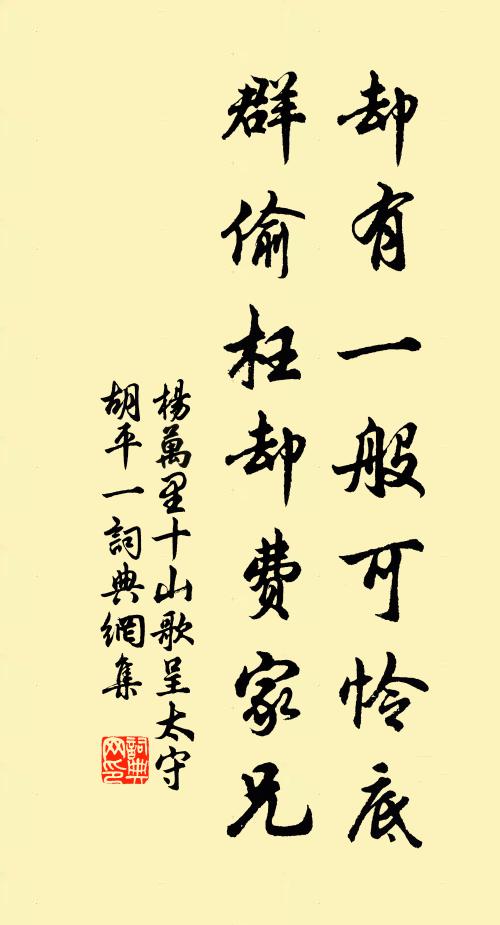 却有一般可怜底
群偷枉却费家兄
楊萬里十山歌呈太守
胡平一詞典網集
詞典网印